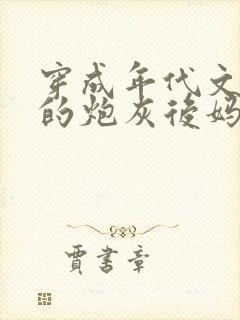 穿成年代文
的炮灰後妈
賈書章